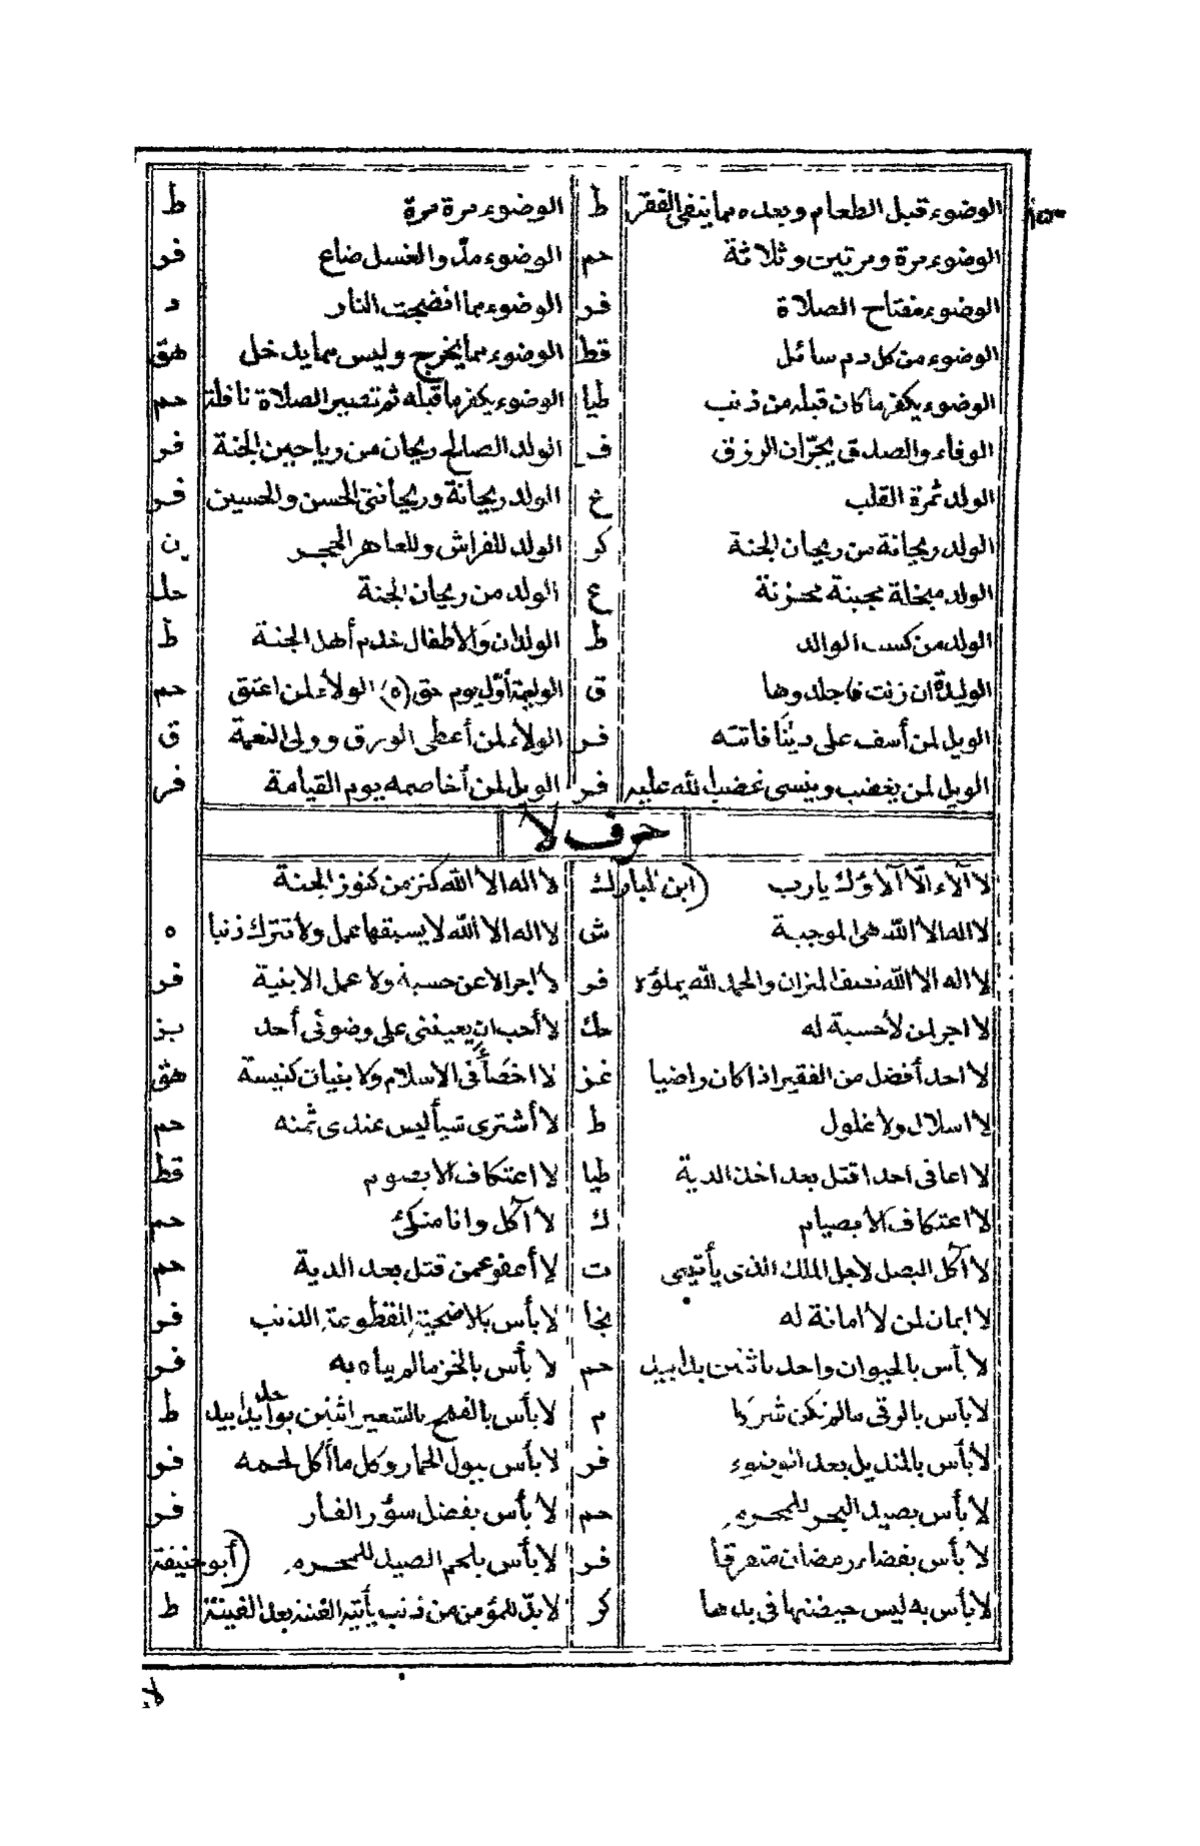 الوضوء قبل الطعام وبعده مما ينفى الفقر ط الوضوء مرة مرة ط
الوضوء مرة ومرتين وثلاثة حم الوضوء مدّ والغسل صاع فر
الوضوء مفتاح الصلاة فر الوضوء مما انضجت النار د
الوضوء من كل دم سائل قط الوضوء مما يخرج وليس مما يدخل هق
الوضوء يكفر ما كان قبله من ذنب طيا الوضوء يكفر ما قبله ثم تصير الصلاة نافلة حم
الوفاء والصدق يجرّان الرزق فر الولد الصالح ريحان من رياحين الجنة فر
الولد ثمرة القلب ع الولد ريحانة وريحانتى الحسن والحسين فر
الولد ريحانة من ريحان الجنة كر الولد للفراش وللعاهر الحجر ن
الولد مبخلة مجبنة محزنة ع الولد من ريحان الجنة حل
الولد من كسب الوالد ط الولدان والاطفال خدم أهل الجنة ط
الوليدة ان زنت فاجلدوها ق الوليمة أوّل يوم حق (ه) الولاء لمن اعتق حم
الويل لمن أسف على دينا فاتته فر الولاء لمن أعطى الورق وولى النعمة ق
الويل لمن يغضب وينسى غضب الله عليه فر الويل لمن أخاصمه يوم القيامة فر
حرف لا
لا آلاء الّا آلاؤك يارب (ابن المبارك لا اله الا الله كنز من كنوز الجنة
لا اله الا الله هى الموجبة ش لا اله الا الله لا يسبقها عمل ولا تترك ذنبا ه
لا اله الا الله نصف الميزان والحمد لله يملؤه فر لا اجر الا عن حسبة ولا عمل الا بنية فر
لا اجر لمن لا حسبة له حك لا أحب ان يعيننى على وضوئى أحد بز
لا احد أفضل من الفقير اذا كان راضيا عز لا اخصأ فى الاسلام ولا بنيان كنيسة هق
لا اسلال ولا غلول ط لا أشترى شيأ ليس عندى ثمنه حم
لا اعافى احدا قتل بعد اخذ الدية طيا لا اعتكاف الا بصوم قط
لا اعتكاف الا بصيام ك لا آكل وانا متكئ حم
لا آكل البصل لاجل الملك الذى يأتينى ت لا أعفو عمن قتل بعد الدية حم
لا ايمان لمن لا امانة له نجا لا بأس بالاضحية المقطوعة الذنب فر
لا بأس بالحيوان واحد باثنين يدا بيد حم لا بأس بالخز ما لم يباه به فر
لا بأس بالرقى مالم تكن شركا م لا بأس بالقمح بالشعير اثنين بواحد يدا بيد ط
لا بأس بالمنديل بعد الوضوء فر لا بأس ببول الحمار وكل ما أكل لحمه فر
لا بأس بصيد البحر للمحرم حم لا بأس بفضل سؤر الفأر فر
لا بأس بقضاء رمضان متفرقا فر لا بأس بلحم الصيد للمحرم (أبو حنيفة
لا بأس به ليس حيضتها فى يدها كر لا بدّ للمؤمن من ذنب يأتيه الفينة بعد الفينة ط